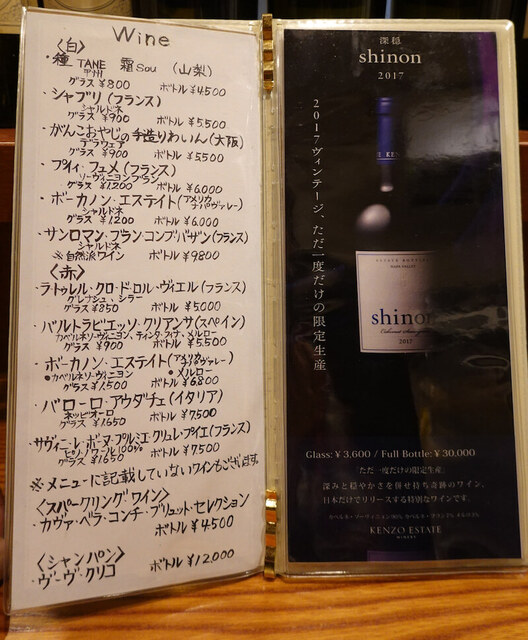 Wine
〈白〉
・種 TANE 霜 Sou (山梨)
甲州
グラス ¥800 ボトル ¥4500
・シャブリ(フランス)
シャルドネ
グラス ¥900 ボトル ¥5,500
・がんこおやじの手造りわいん(大阪)
デラウェア
グラス ¥900 ボトル ¥5,500
・プイィ・フュメ(フランス)
ソーヴィニヨンブラン
グラス ¥1,200 ボトル ¥6,000
・ボーカノン・エステイト(アメリカ ナパヴァレー)
シャルドネ
グラス ¥1,200 ボトル ¥6,000
・サンロマン・ブラン・コンブ・バザン(フランス)
シャルドネ
※自然派ワイン ボトル ¥9800
〈赤〉
・ラ・トゥレル・クロ・ド・ロル・ヴィエル(フランス)
グルナシュ・シラー
グラス ¥850 ボトル ¥5,000
・バルトラビエッソ・クリアンサ(スペイン)
カベルネソーヴィニヨン、ティンタ・フィナ、メルロー
グラス ¥900 ボトル ¥5500
・ボーカノン・エステイト(アメリカ ナパヴァレー)
●カベルネソーヴィニヨン ●メルロー
グラス ¥1,500 ボトル ¥6800
・バローロ・アウダチェ(イタリア)
ネッビオーロ
グラス ¥1,650 ボトル ¥7,500
・サヴィニ・レ・ボーヌ・プルミエ・クリュ・レ・プイエ(フランス)
ピノ・ノワール100%
グラス ¥1650 ボトル ¥7,500
※メニューに記載していないワインもございます。
〈スパークリングワイン〉
・カヴァ・ベラ・コンチ・ブリュット・セレクション
ボトル ¥4,500
〈シャンパン〉
・ヴーヴ・クリコ ボトル ¥12,000
深穏
shinon
2017
2017ヴィンテージ、ただ一度だけの限定生産
shinon
Cabernet Sauvignon
2017
Glass: ¥3,600 / Full Bottle: ¥30,000
"ただ一度だけの限定生産"
深みと穏やかさを併せ持ち奇跡のワイン。
日本だけでリリースする特別なワインです。
KENZO ESTATE
WINERY